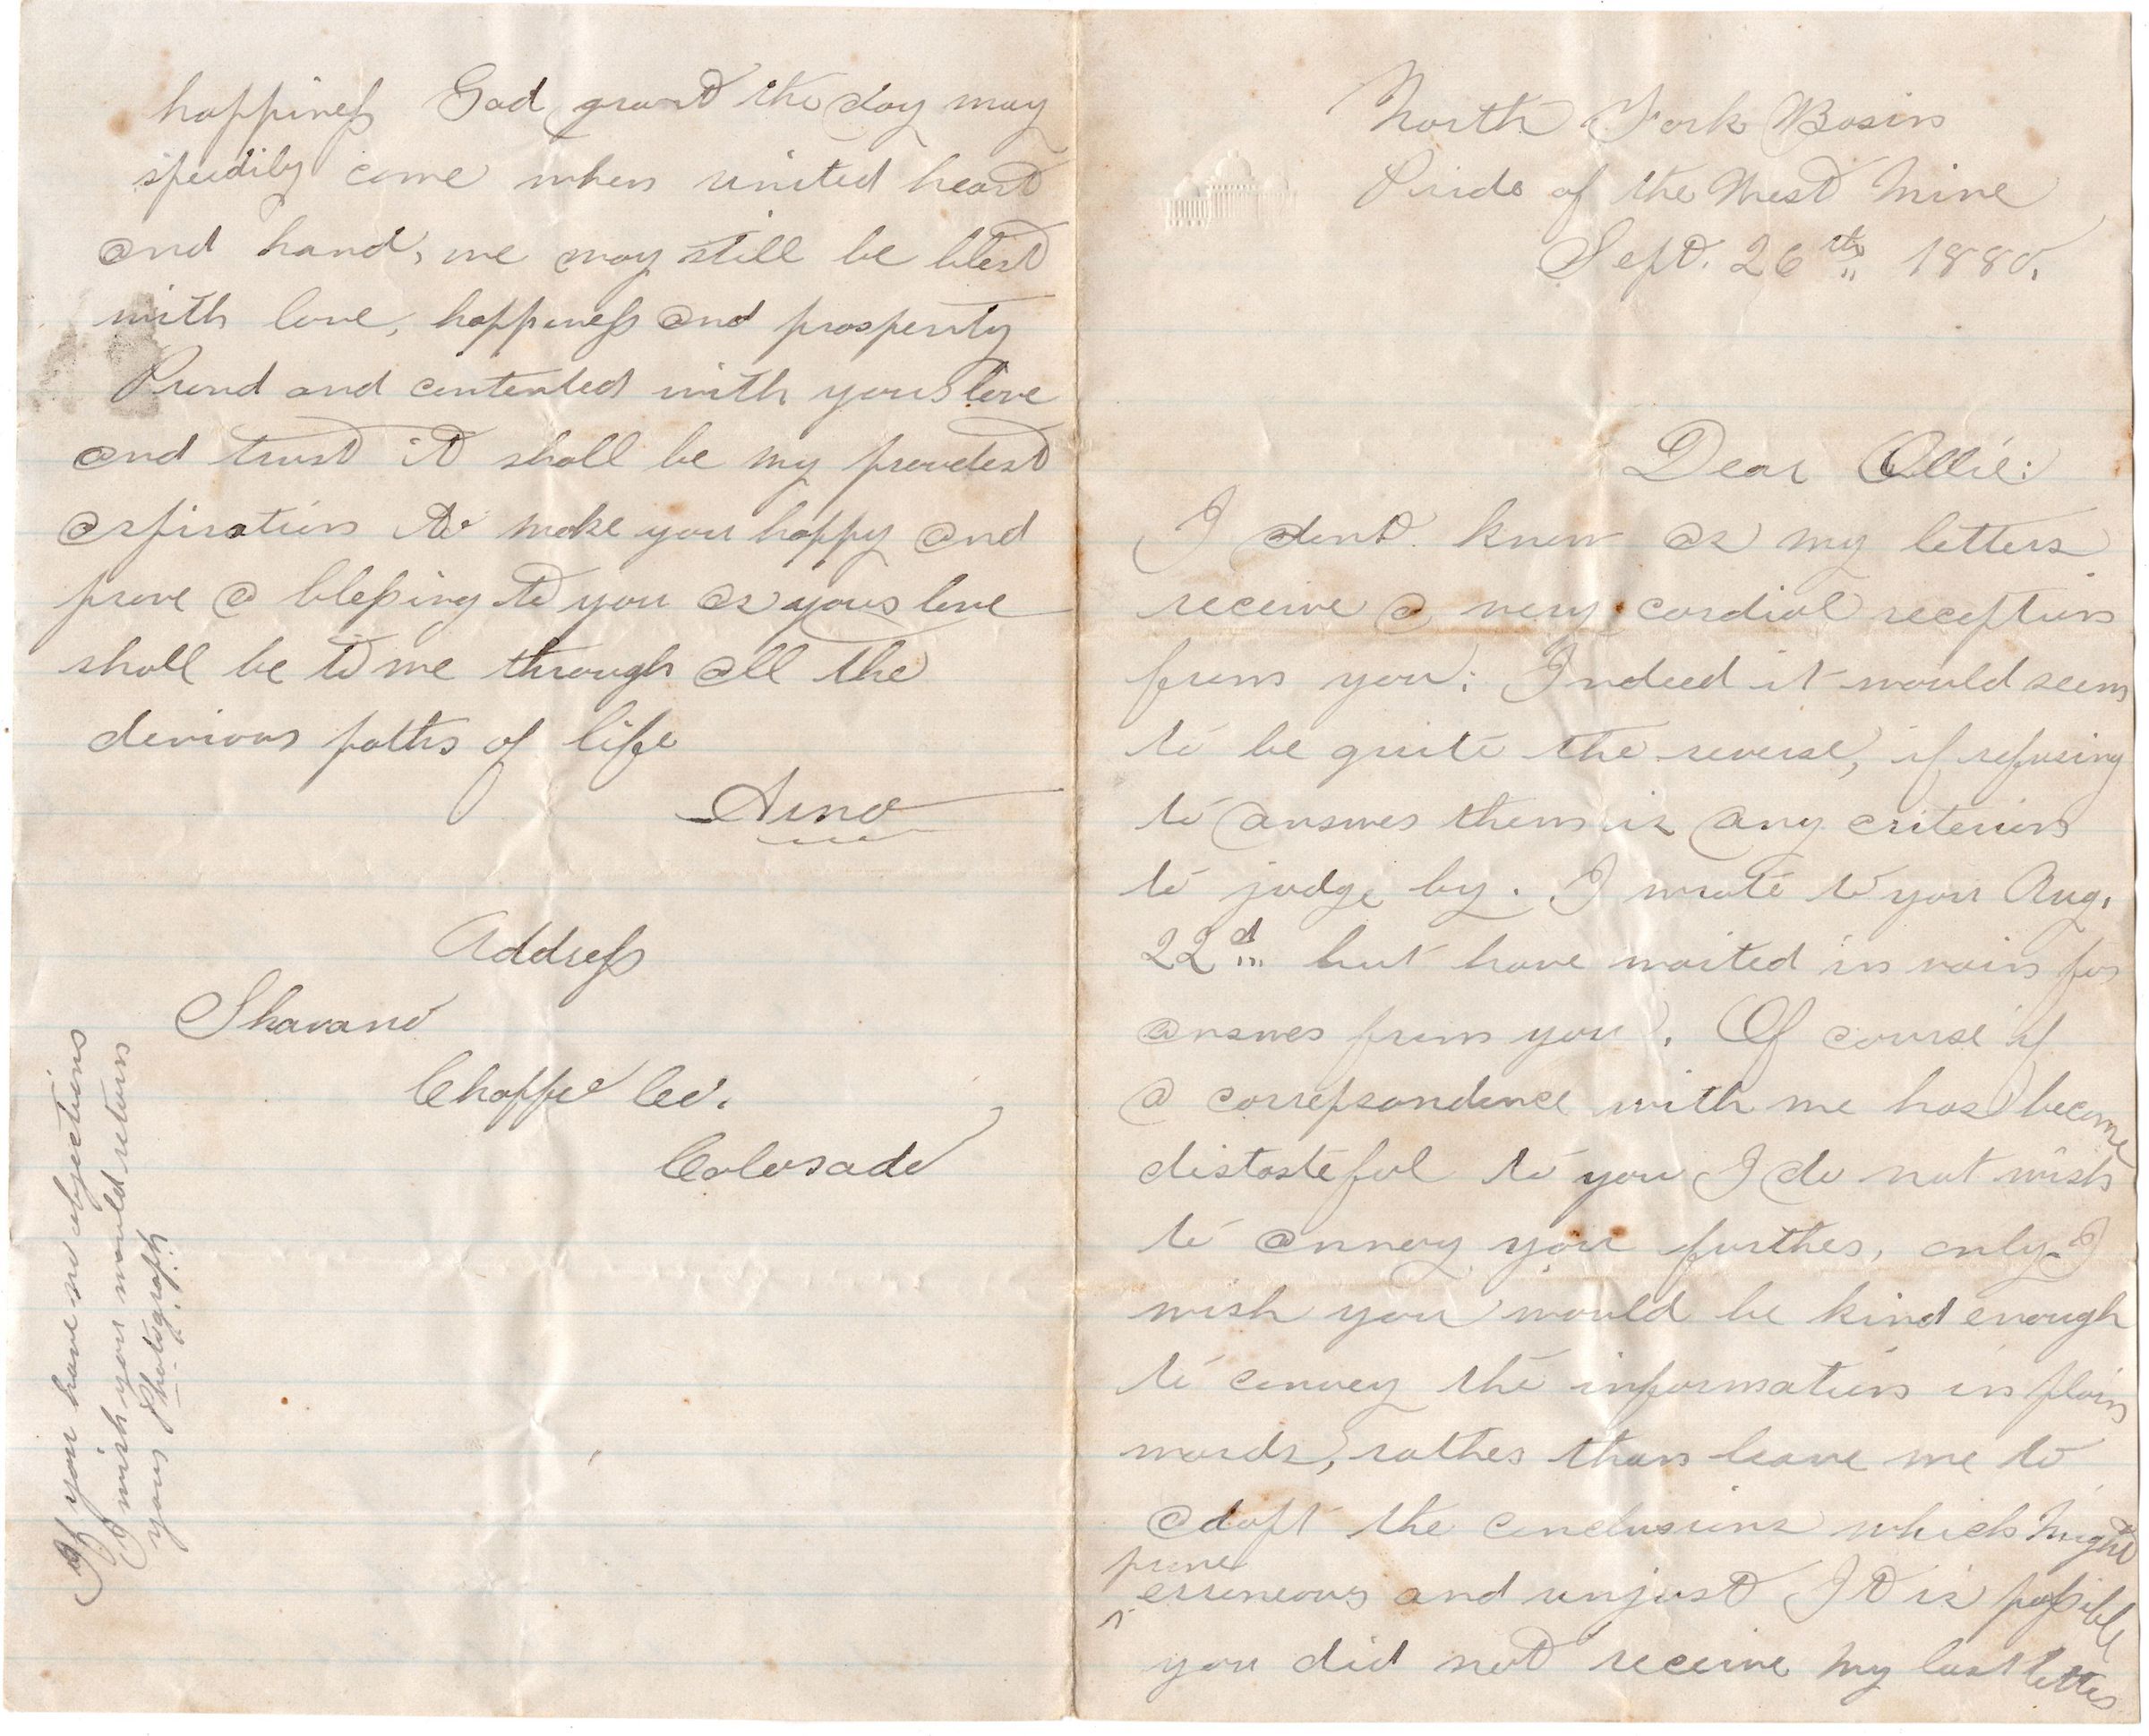 North Fork Basin
Pride of the West Mine
Sept. 26th 1880.
Dear Ollie:
I dont know as my letters
receive a very cordial reception
from you: Indeed it would seem
to be quite the reverse, if refusing
to answer them is any criterion
to judge by. I wrote to you Aug.
22d but have waited in vain for
answer from you. Of course if
a correspondence with me has become
distasteful to you I do not wish
to annoy you further, only I
wish you would be kind enough
to convey the information in plain
words, rather than leave me to
adopt the conclusions which might
prove
erroneous and unjust It is possible
you did not receive my last letter
happiness God grant the day may
speedily come when united heart
and hand, we may still be blest
with love, happiness and prosperity
Proud and contented with your love
and trust it shall be my proudest
aspiration to make you happy and
prove a blessing to you as your love
shall be to me through all the
devious paths of life
Arno
Address
Shavano
Chaffe Co.
Colorado
If you have no objections
I wish you would return
your Photograph